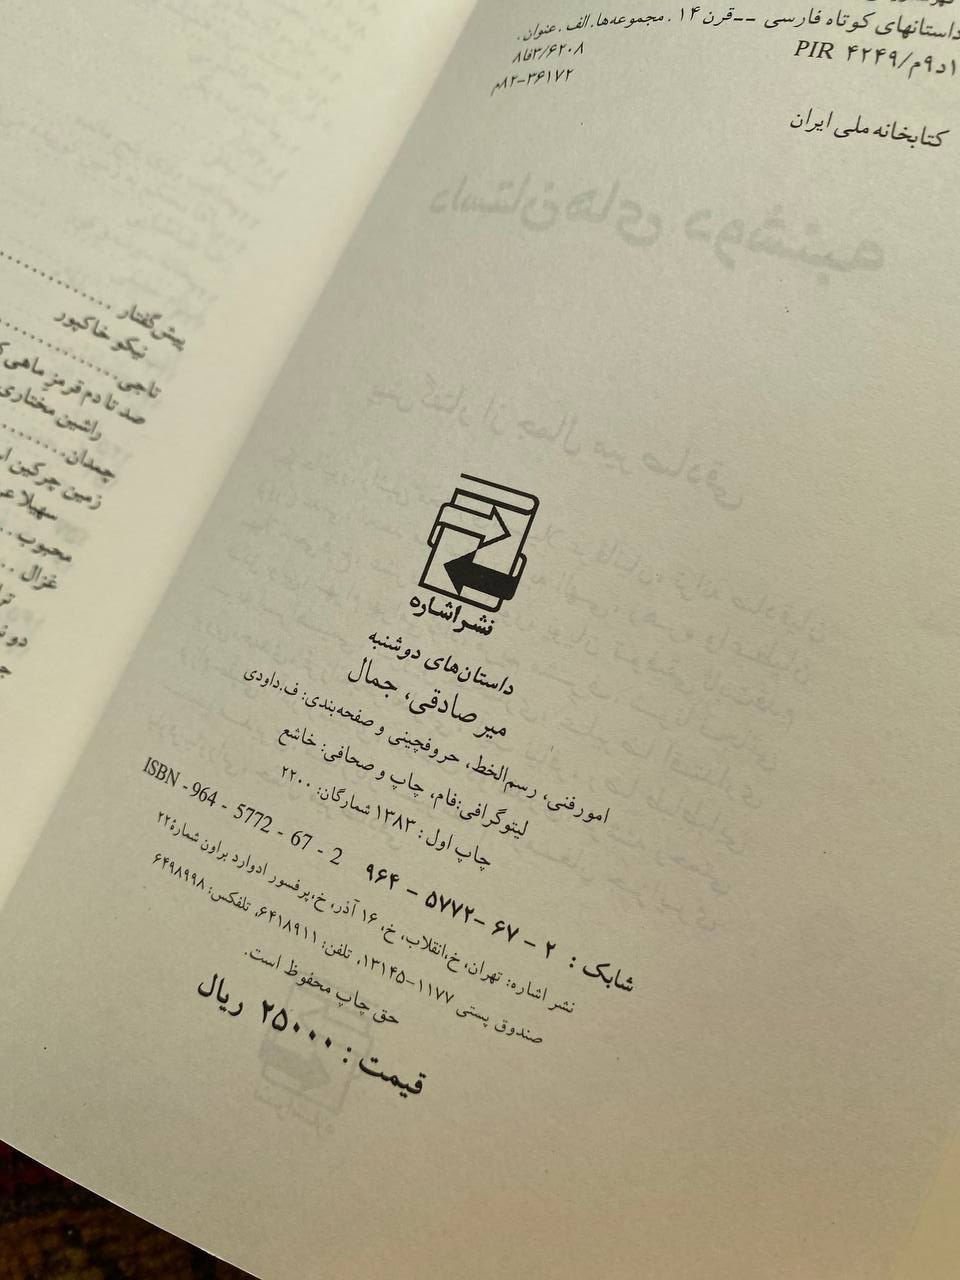 داستانهای کوتاه فارسی -- قرن ۱۴. مجموعه‌ها. الف. عنوان.
۸فا۳/۶۲۰۸
PIR ۴۲۴۹/د۹م۱
۸۲-۳۶۱۷۲م
کتابخانه ملی ایران
نشر اشاره
داستان‌های دوشنبه
میرصادقی، جمال
امورفنی، رسم‌الخط، حروفچینی و صفحه‌بندی: ف.داودی
لیتوگرافی:فام، چاپ و صحافی: خاشع
چاپ اول : ۱۳۸۳ شمارگان: ۲۲۰۰
شابک : ۲ - ۶۷ -۵۷۷۲ - ۹۶۴ ISBN - 964 - 5772 - 67 - 2
نشر اشاره: تهران، خ،انقلاب، خ، ۱۶ آذر، خ،پرفسور ادوارد براون شمارۀ۲۲
صندوق پستی ۱۱۷۷-۱۳۱۴۵، تلفن: ۶۴۱۸۹۱۱، تلفکس: ۶۴۹۸۹۹۸
حق چاپ محفوظ است.
قیمت : ۲۵۰۰۰ ریال
پیش‌گفتار
نیکو خاکپور
تاجی
صد تا دم قرمز ماهی
راشین مختاری
چمدان
زمین چرکین
سهیلا
محبوب
غزال